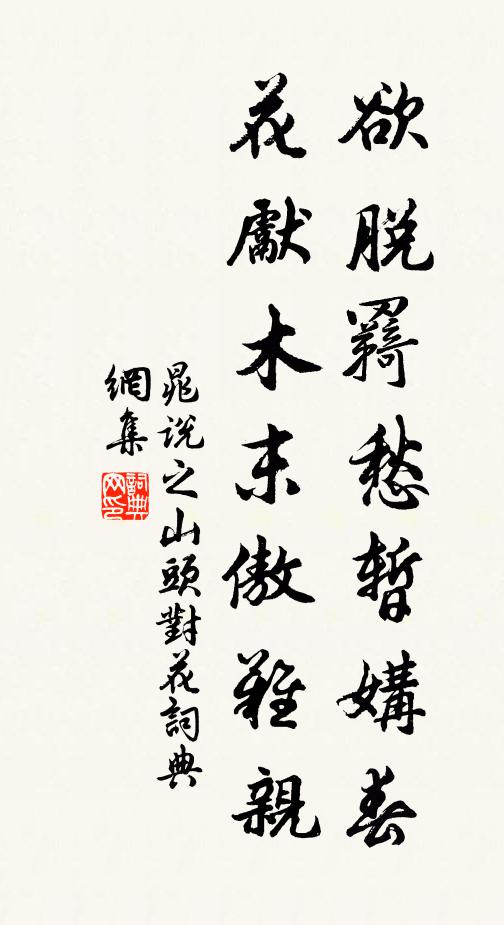 欲脫羇愁暫媾春
花獻木末傲難親
晁說之山頭對花詞典
網集
詞典
网印